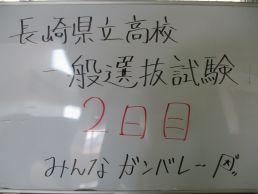 長崎県立高校
一般選抜試験
2日目
みんなガンバレー